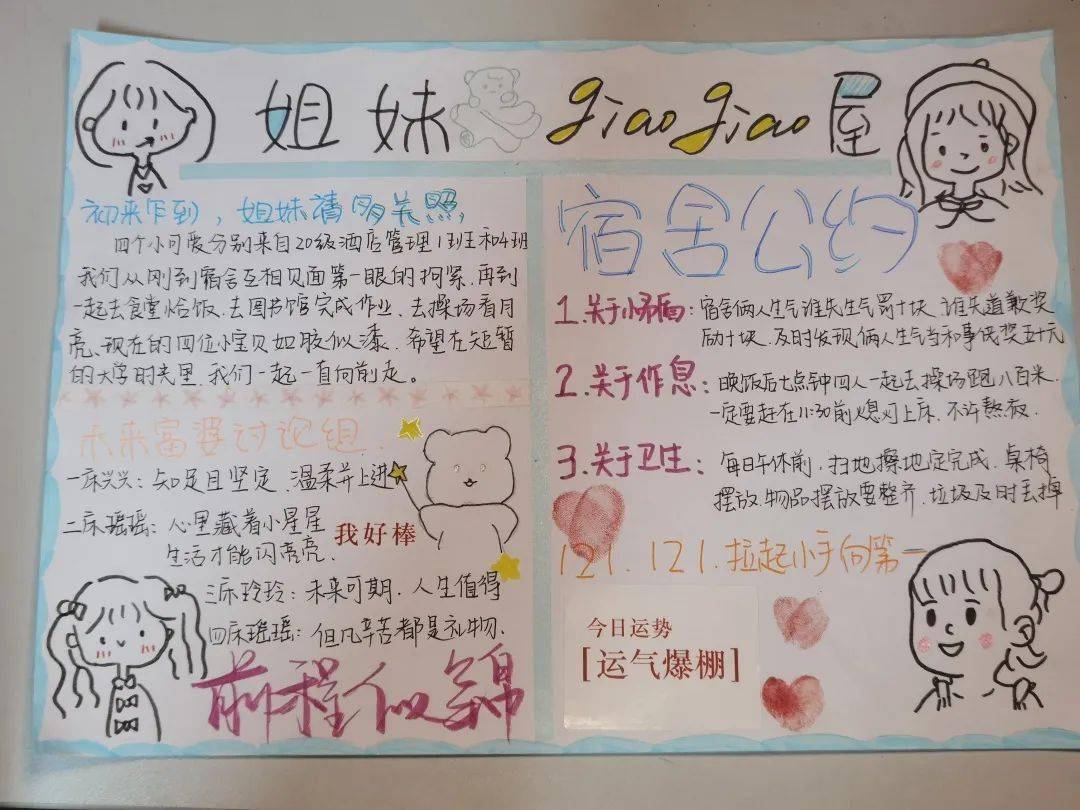 姐妹giaogiao屋
初来乍到，姐妹请多关照，
四个小可爱分别来自20级酒店管理1班和4班
我们从刚到宿舍互相见面第一眼的拘紧.再到
一起去食堂恰饭.去图书馆完成作业.去操场看月
亮.现在的四位小宝贝如胶似漆.希望在短暂
的大学时光里.我们一起一直向前走。
未来富婆讨论组.
一床兴兴：知足且坚定.温柔并上进
二床瑶瑶：心里藏着小星星
生活才能闪亮亮.
我好棒
三床玲玲：未来可期.人生值得
四床瑶瑶：但凡辛苦都是礼物.
前程似锦
宿舍公约
1.关于小矛盾：宿舍俩人生气谁先生气罚十块.谁先道歉奖
励十块.及时发现俩人生气当和事佬奖五十元
2.关于作息：晚饭后七点钟四人一起去操场跑八百米.
一定要赶在11:30前熄灯上床.不许熬夜.
3.关于卫生：每日午休前.扫地擦地定完成.桌椅
摆放.物品摆放要整齐.垃圾及时丢掉
121.121.拉起小手向第一
今日运势
[运气爆棚]